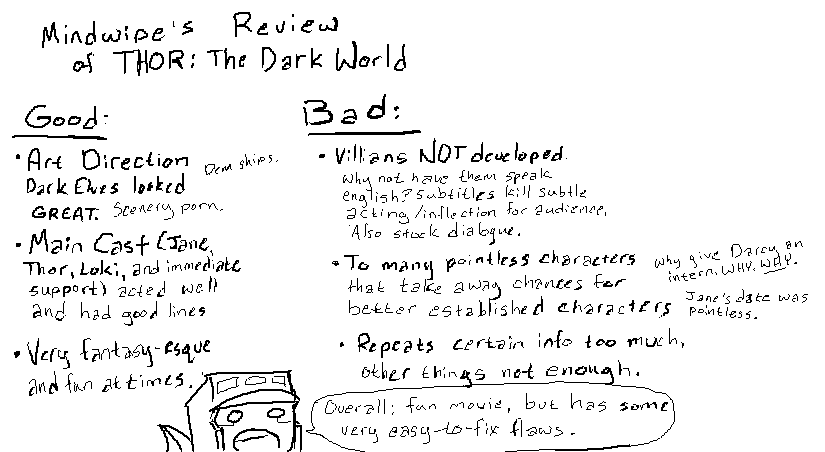 Mindwipe's Review
of THOR: The Dark World
Good:
• Art Direction
Dem ships.
Dark Elves looked
GREAT. Scenery porn.
• Main Cast (Jane,
Thor, Loki, and immediate
support) acted well
and had good lines
• Very fantasy-esque
and fun at times.
Bad:
• Villians NOT developed.
Why not have them speak
english? Subtitles kill subtle
acting/inflection for audience.
Also stock dialogue.
• To many pointless characters
that take away chances for
better established characters
Why give Darcy an
intern. WHY. WHY.
Jane's date was
pointless.
• Repeats certain info too much,
other things not enough.
Overall: fun movie, but has some
very easy-to-fix flaws.